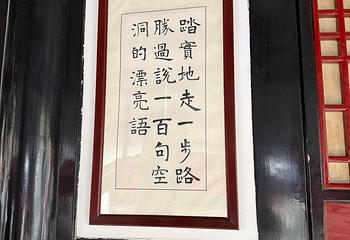 踏實地走一步路
勝過說一百句空
洞的漂亮語